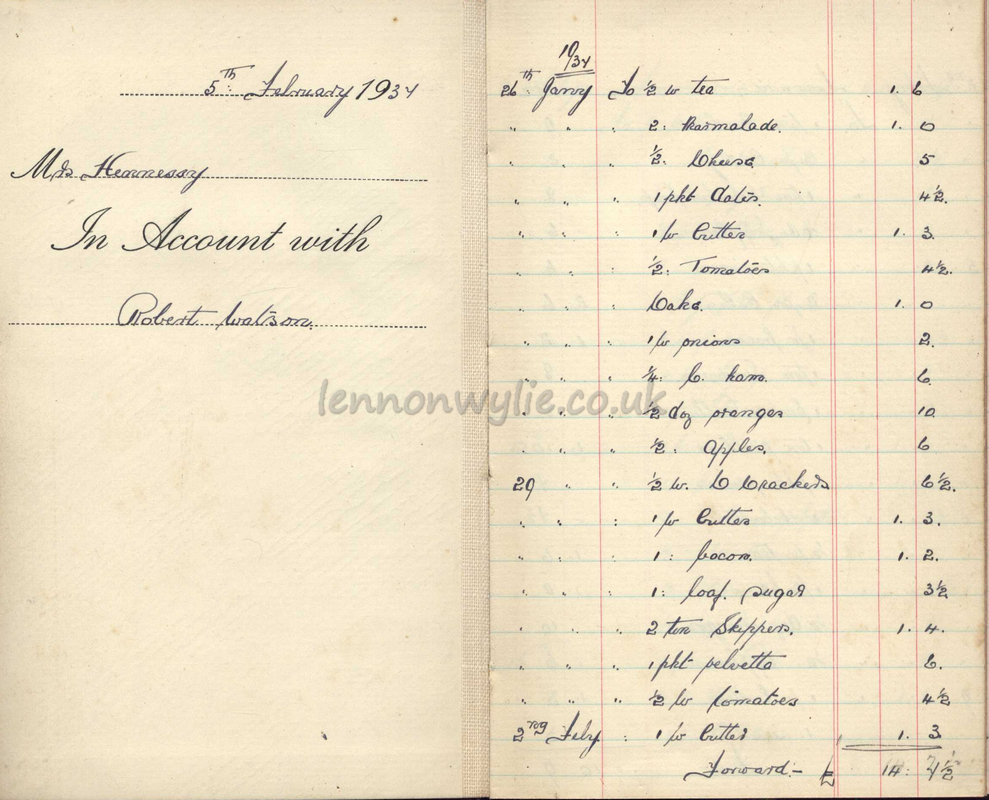 5th: February 1934
Mrs Hennessy
In Account with
Robert Watson.
1934
26th Janry To 1/2 lb tea 1. 6
" " " 2: Marmalade. 1. 0
" " " 1/2: Cheese 5
" " " 1 pkt dates. 4 1/2.
" " " 1 lb butter 1. 3.
" " " 1/2: Tomatoes 4 1/2.
" " " Cake. 1. 0
" " " 1 lb onions 2.
" " " 1/4: C. ham. 6.
" " " 1/2 doz oranges 10
" " " 1/2: apples. 6
29 " " 1/2 lb. C Crackers 6 1/2.
" " : 1 lb butter 1. 3.
" " : 1: bacon. 1. 2.
" " : 1: loaf. sugar 3 1/2
" " " 2 tin Skippers. 1. 4.
" " " 1 pkt velvetta 6.
" " " 1/2 lb tomatoes 4 1/2
2nd Feby : 1 lb butter 1. 3
Forward:- £ 14: 7 1/2
lennonwylie.co.uk